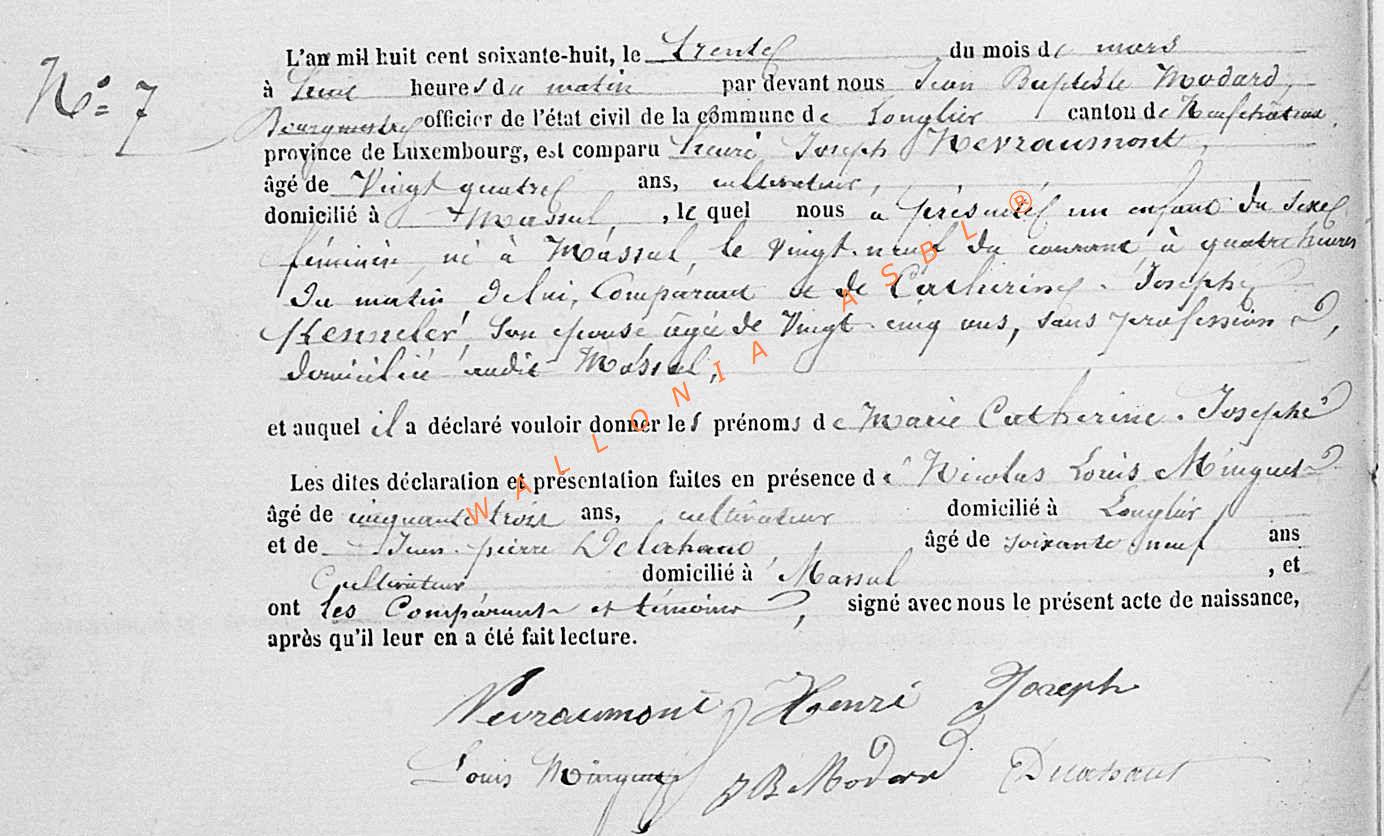 N° 7
L'an mil huit cent soixante-huit, le trente du mois de mars
à heures du matin par devant nous Jean Baptiste Modard,
Bourgmestre officier de l'état civil de la commune de Longlier canton de Neufchâteau,
province de Luxembourg, est comparu Henri Joseph Nevraumont,
âgé de Vingt quatre ans, cultivateur,
domicilié à Massul, lequel nous a présenté un enfant du sexe
féminin, né à Massul, le vingt-neuf du courant, à quatre heures
du matin de lui, Comparant et de Catherine - Josephe
son épouse âgée de Vingt-cinq ans, sans profession,
domiciliée audit Massul,
et auquel il a déclaré vouloir donner les prénoms de Marie Catherine - Josephe
Les dites déclaration et présentation faites en présence de Nicolas Louis Minguet
âgé de cinquante trois ans, cultivateur domicilié à Longlier
et de Jean-pierre âgé de soixante neuf ans
Cultivateur domicilié à Massul, et
ont les Comparant et témoins, signé avec nous le présent acte de naissance,
après qu'il leur en a été fait lecture.
Nevraumont Henri Joseph
Louis Minguet JB Modard
WALLONIA ASBL ®